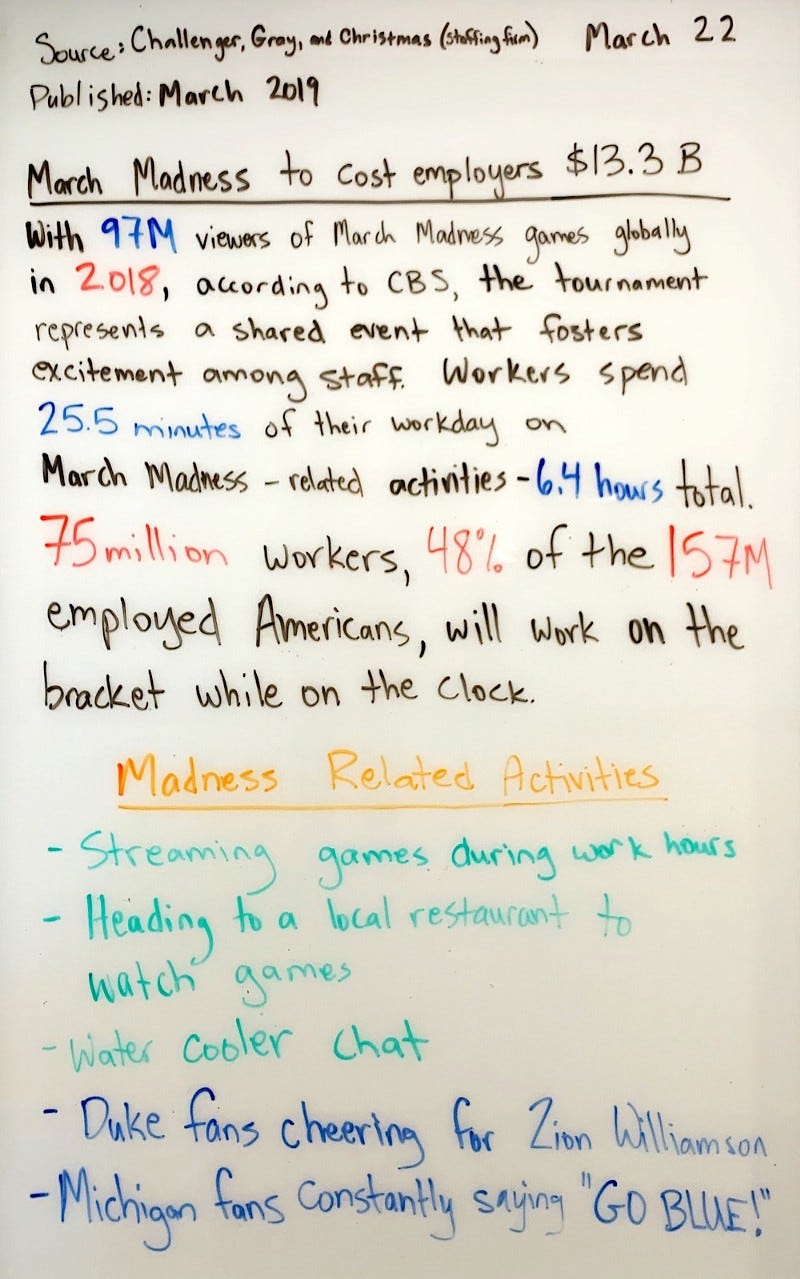 Source: Challenger, Gray, and Christmas (staffing firm) March 22
Published: March 2019
March Madness to cost employers $13.3 B
With 97M viewers of March Madness games globally
in 2018, according to CBS, the tournament
represents a shared event that fosters
excitement among staff. Workers spend
25.5 minutes of their workday on
March Madness - related activities - 6.4 hours total.
75 million workers, 48% of the 157M
employed Americans, will work on the
bracket while on the clock.
Madness Related Activities
- Streaming games during work hours
- Heading to a local restaurant to
watch games
- Water cooler chat
- Duke fans cheering for Zion Williamson
- Michigan fans constantly saying "GO BLUE!"